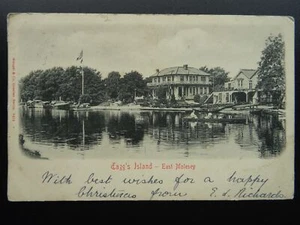 Tagg's Island — East Molesey
With best wishes for a happy
Christmas from E. S. Richards